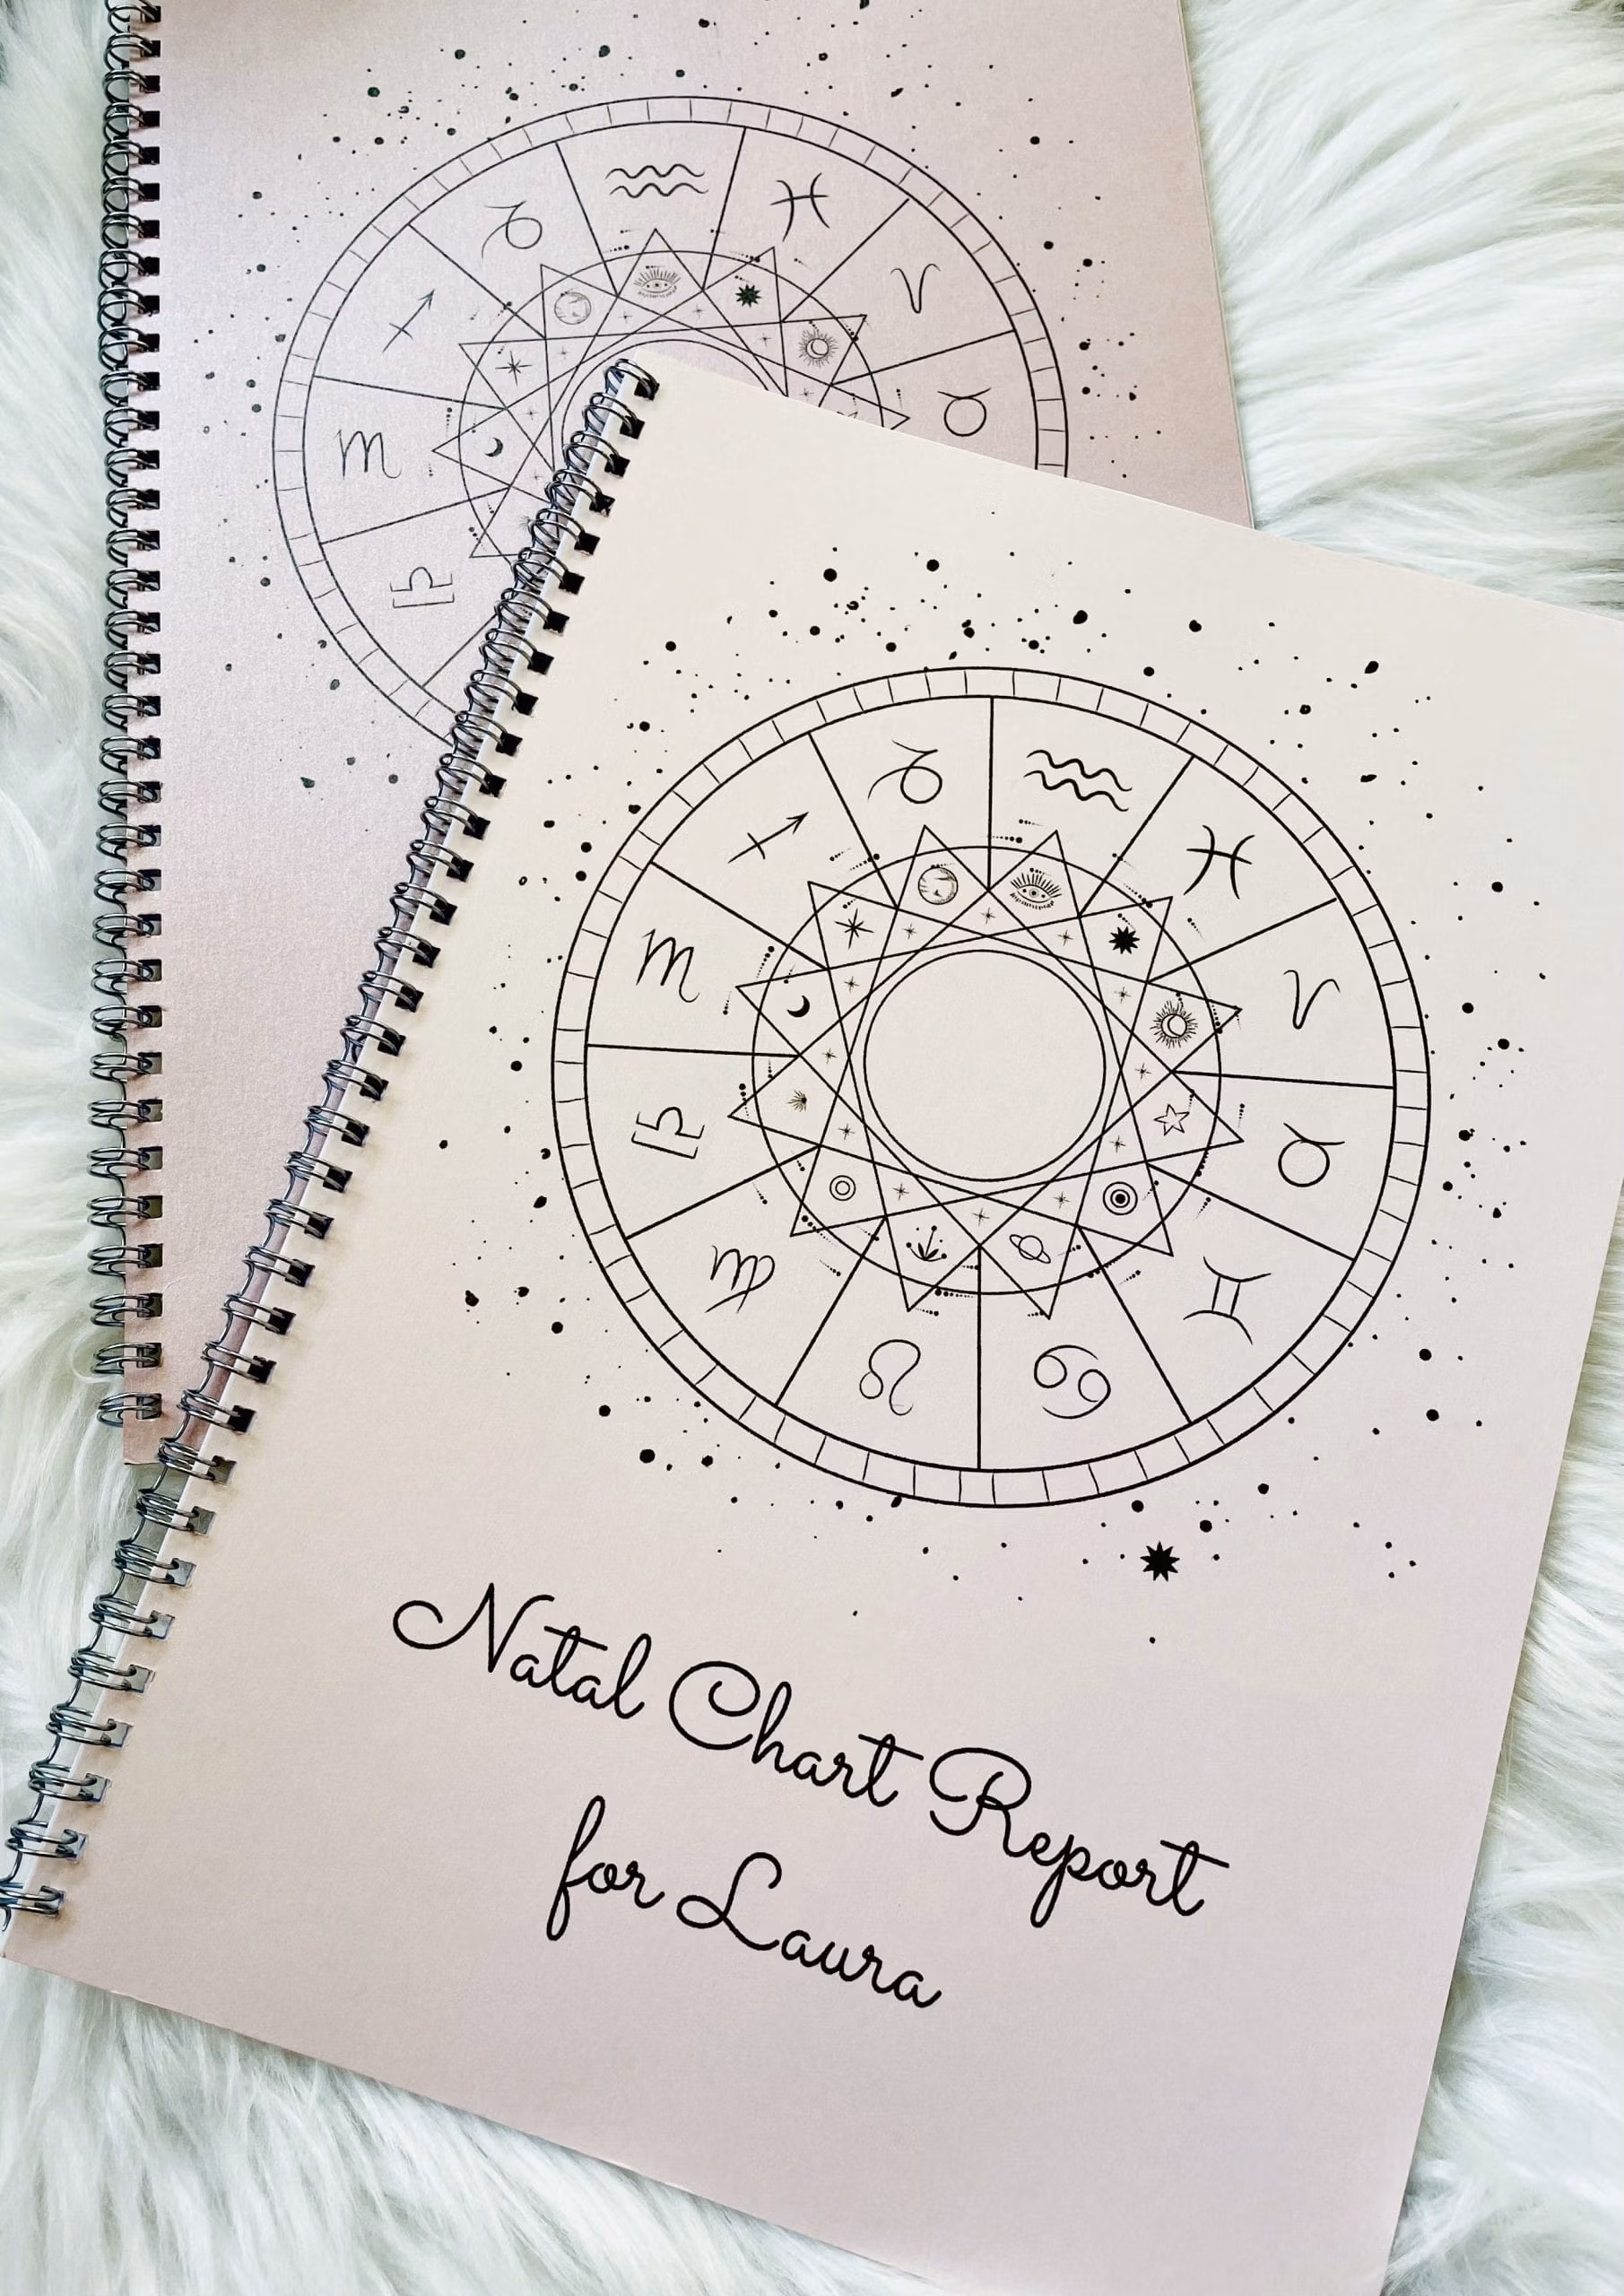 Natal Chart Report
for Laura